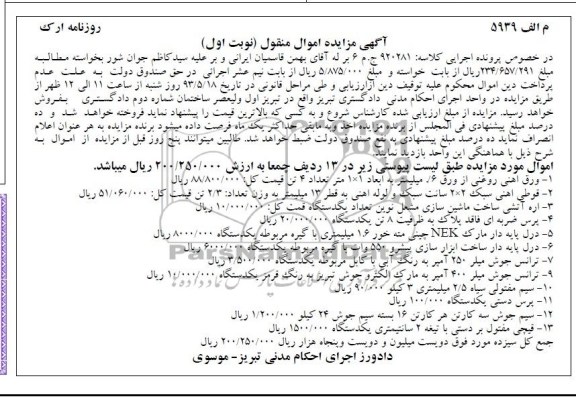 م الف ۵۹۳۹
روزنامه ارک
آگهی مزایده اموال منقول (نوبت اول)
در خصوص پرونده اجرایی کلاسه: ۹۲۰۲۸۱ ج.م ۶ بر له آقای بهمن قاسمیان ایرانی و بر علیه سیدکاظم جوان شور بخواسته مطالبه
مبلغ ۲۳۴/۶۵۷/۲۹۱ریال از بابت خواسته و مبلغ ۵/۸۷۵/۰۰۰ ریال از بابت نیم عشر اجرائی در حق صندوق دولت به علت عدم
پرداخت دین اموال محکوم علیه توقیف دین ازارزیابی و طی مراحل قانونی در تاریخ ۹۳/۵/۱۸ روز شنبه از ساعت ۱۱ الی ۱۲ ظهر از
طریق مزایده در واحد اجرای احکام مدنی دادگستری تبریز واقع در تبریز اول ولیعصر ساختمان شماره دوم دادگستری بفروش
خواهد رسید. مزایده از مبلغ ارزیابی شده کارشناس شروع و به کسی که بالاترین قیمت را پیشنهاد نماید فروخته خواهد شد و ده
درصد مبلغ پیشنهادی فی المجلس از برنده مزایده اخذ و به مابقی حداکثر یک ماه فرصت داده میشود برنده مزایده به هر عنوان اعلام
انصراف نماید ده درصد مبلغ پیشنهادی به نفع صندوق دولت ضبط خواهد شد. طالبین میتوانند پنج روز قبل از مزایده از اموال به
شرح ذیل با هماهنگی این واحد بازدید نمایند.
اموال مورد مزایده طبق لیست پیوستی زیر در ۱۳ ردیف جمعا به ارزش ۲۰۰/۲۵۰/۰۰۰ ریال میباشد.
۱- ورق آهنی روغنی از ورق ۶ میلیمتر به ابعاد ۱×۱ متر تعداد ۴ تن قیمت کل: ۸۸/۸۰۰/۰۰۰ ریال
۲- قوطی آهنی سبک ۲×۲ سانت سبک و لوله آهنی به قطر ۱۳ میلیمتر به وزن تعداد: ۲/۳ تن قیمت کل: ۵۱/۰۶۰/۰۰۰ ریال
۳- اره آتشی ساخت ماشین سازی مشعل نوین تعداد یکدستگاه قیمت کل: ۱۰/۰۰۰/۰۰۰ ریال
۴- پرس ضربه ای فاقد پلاک به ظرفیت ۸ تن یکدستگاه ۲۰/۰۰۰/۰۰۰ ریال
۵- درل پایه دار مارک NEK چینی مته خور ۱.۶ میلیمتری با گیره مربوطه یکدستگاه ۸/۰۰۰/۰۰۰ ریال
۶- درل پایه دار ساخت ابزار سازی پیشرو ۵۵۰ وات با گیره مربوطه یکدستگاه ۶/۰۰۰/۰۰۰ ریال
۷- ترانس جوش میلر ۲۵۰ آمپر به رنگ آبی با کابل مربوطه یکدستگاه ۳/۵۰۰/۰۰۰ ریال
۹- ترانس جوش میلر ۴۰۰ آمپر به مارک الکترو جوش تبریز به رنگ قرمز یکدستگاه ۱۰/۰۰۰/۰۰۰ ریال
۱۰- سیم مفتولی سیاه ۲/۵ میلیمتری ۳ کیلو ۹۰/۰۰۰ ریال
۱۱- پرس دستی یکدستگاه ۱۰۰/۰۰۰ ریال
۱۲- سیم جوش سه کارتن هر کارتن ۱۶ بسته سیم جوش ۲۴ کیلو ۱/۲۰۰/۰۰۰ ریال
۱۳- قیچی مفتول بر دستی با تیغه ۲ سانتیمتری یکدستگاه ۱۵۰۰/۰۰۰ ریال
جمع کل سیزده مورد فوق دویست میلیون و دویست وپنجاه هزار ریال ۲۰۰/۲۵۰/۰۰۰ ریال
دادورز اجرای احکام مدنی تبریز- موسوی